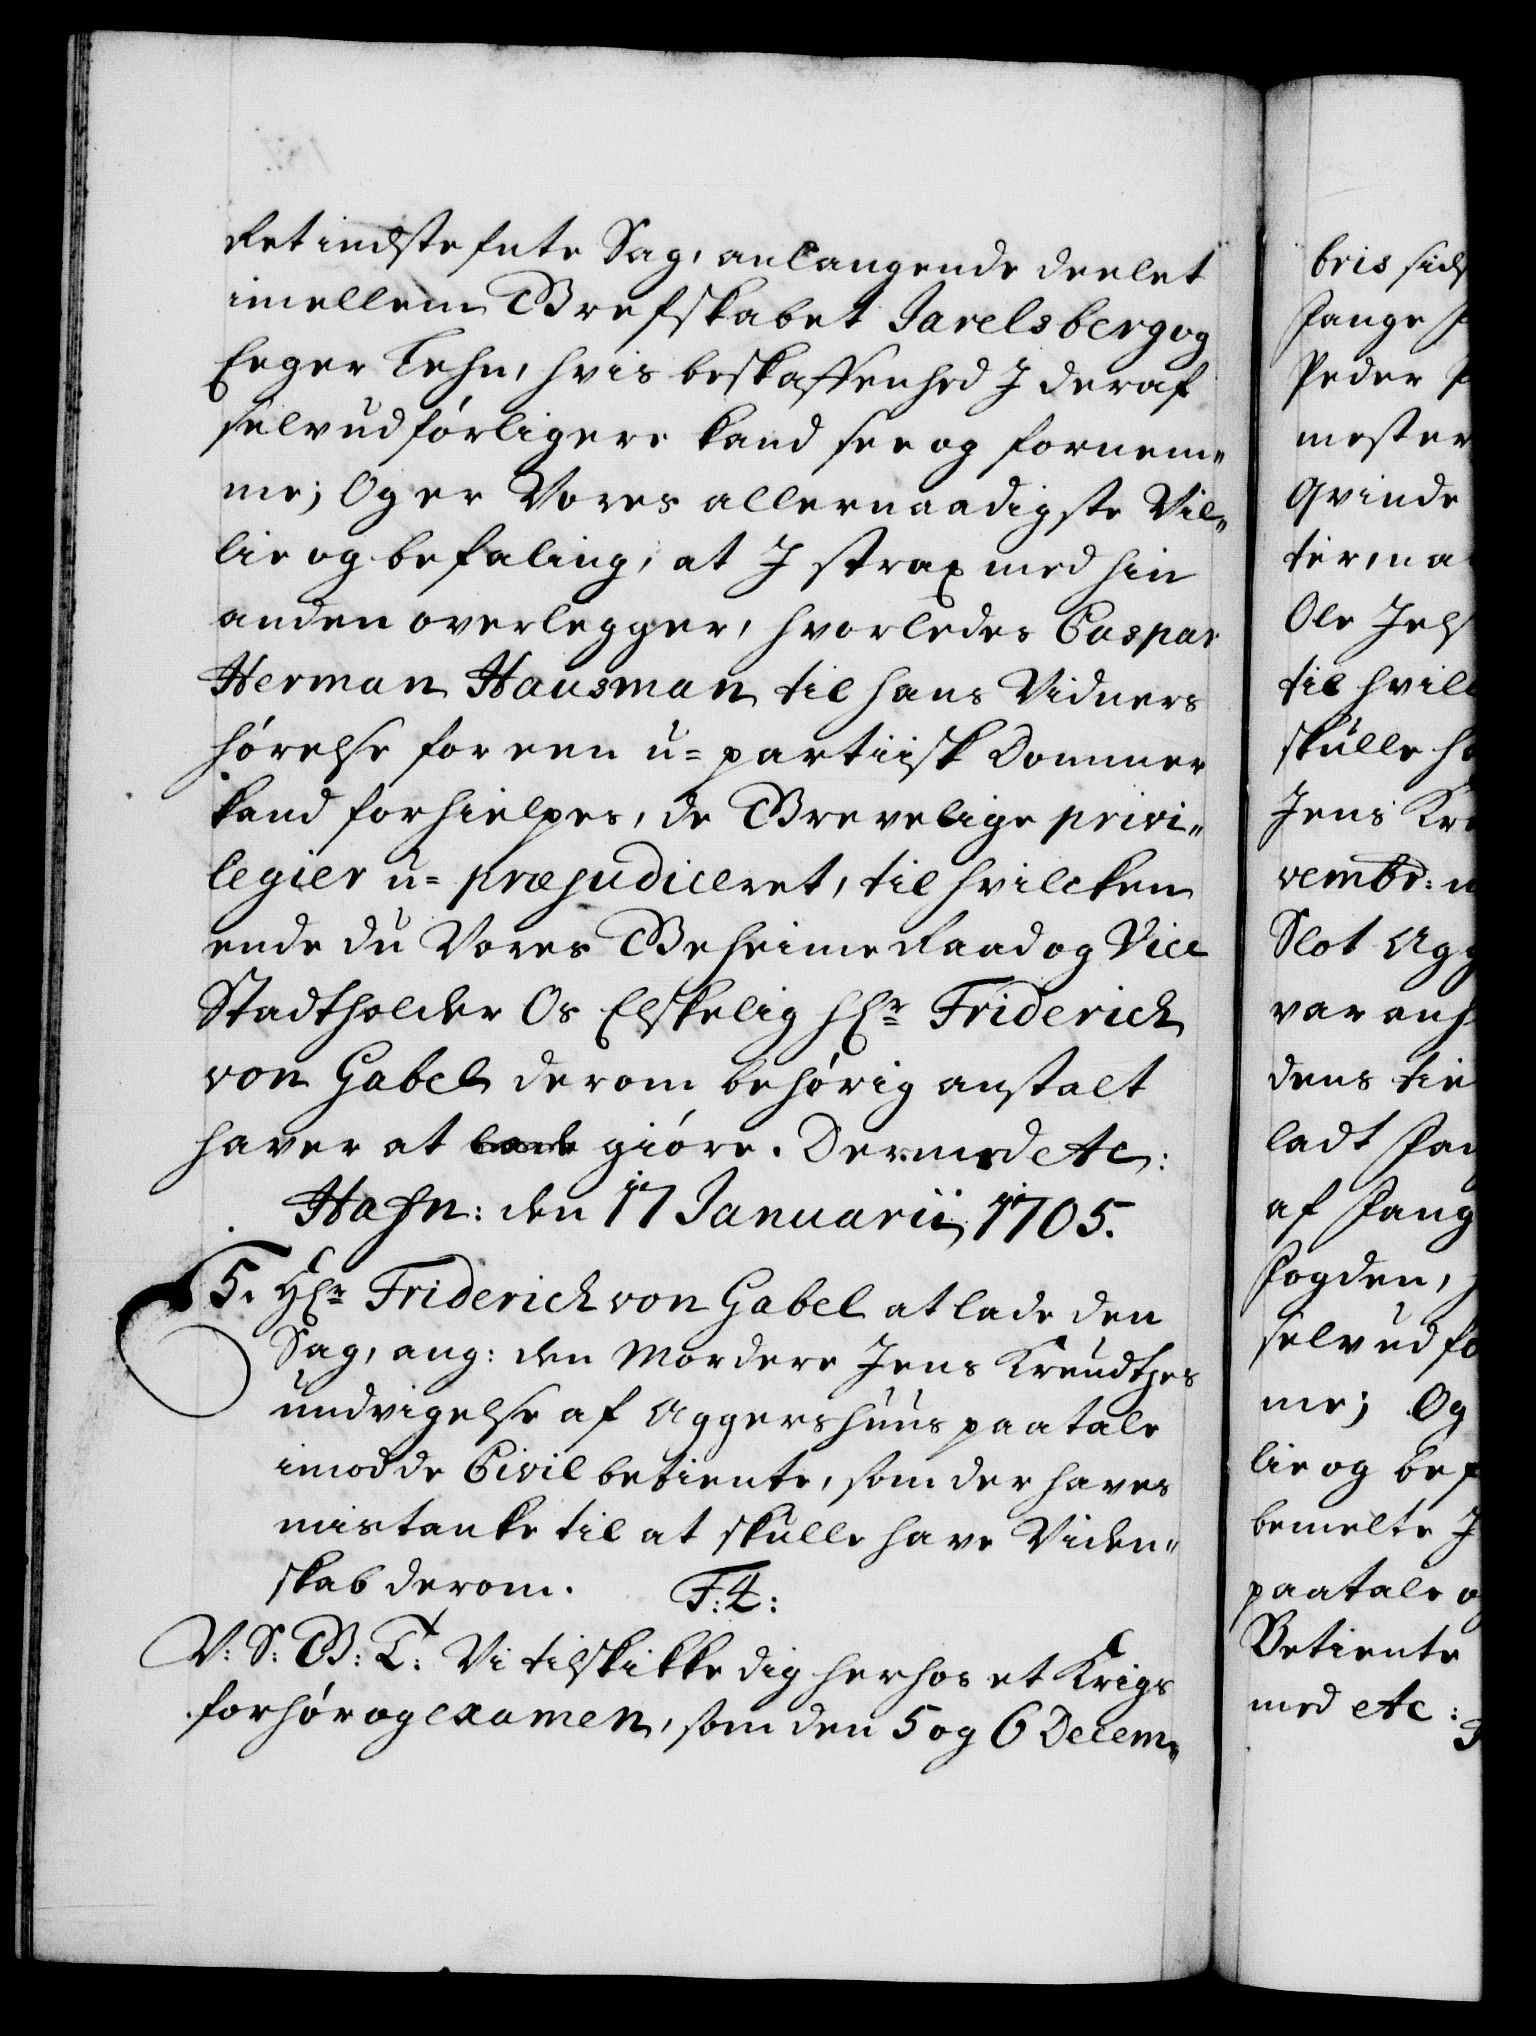 Ret indstefnte Sag, anlangende deelet
imellem Grefskabet Jarelsberg og
Eeger Lehn, hvis beskaffenhed J deraf
selv udförligere kand see og fornem„
me; Og er Vores allernaadigste Vil„
lie og befaling, at J strax med hin
anden overlegger, hvorledes Caspar
Herman Hausman til hans Vidners
hörelse for een u= partiisk Dommer
kand forhielpes, de Grevelige privi„
legier u= præjudiceret, til hvilcken
ende du Vores Geheime Raad og Vice
Stadtholder Os Elskelig Hr Friderich
von Gabel derom behörig anstalt
haver at lade giöre. Dermed etc:
Hafn: den 17 Januarii 1705.
5. Hr Friderich von Gabel at lade den
Sag, ang: den Mordere Jens Kreudtzes
undvigelse af Aggershuus paatale
imod de Civil betiente, som der haves
mistanke til at skulle have Viden„
skab derom. F: 4:
V: S: G: T: Vi tilskikke dig herhos et Krigs
forhör og examen, som den 5 og 6 Decem„
bris
fange
Peder
mester
Qvinde
Ole
til
skulle
Jens
vembr:
Slot
dens
ladt
af
fogden,
selv
me; Og
lie og
bemelte J
paatale
Betiente
med etc: